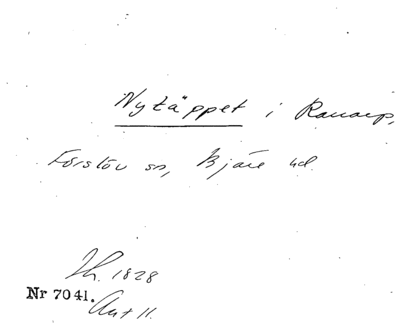 Nytäppet i Ranarp,
Förslöv sn, Bjäre hd
Jh. 1828
Nr 7041.
Akt 11.